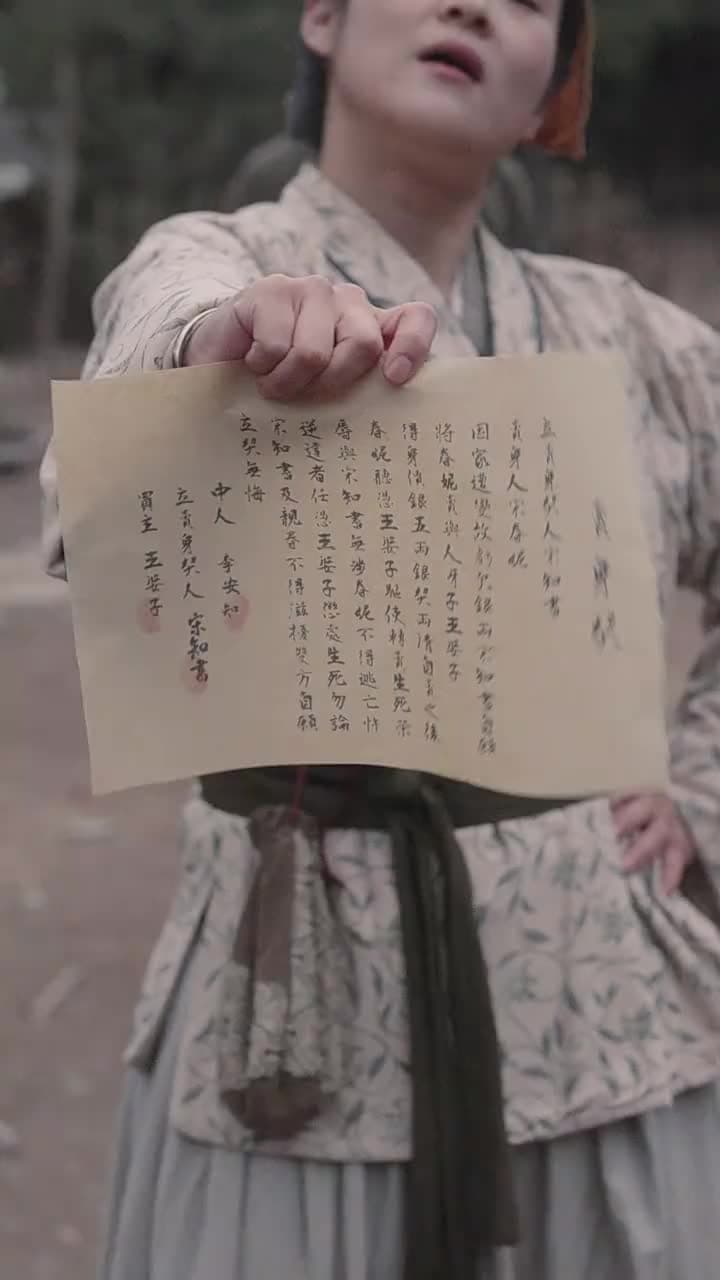 賣身契
立賣身契人宋知書
賣身人宋春妮
因家遭變故虧欠銀兩宋知書自願
將春妮賣與人牙子王婆子
得身價銀五兩銀契兩清自賣之後
春妮聽憑王婆子驅使轉賣生死榮
辱與宋知書無涉春妮不得逃亡忤
逆違者任憑王婆子懲處生死勿論
宋知書及親眷不得滋擾雙方自願
立契無悔
中人 李安知
立賣身契人 宋知書
買主 王婆子